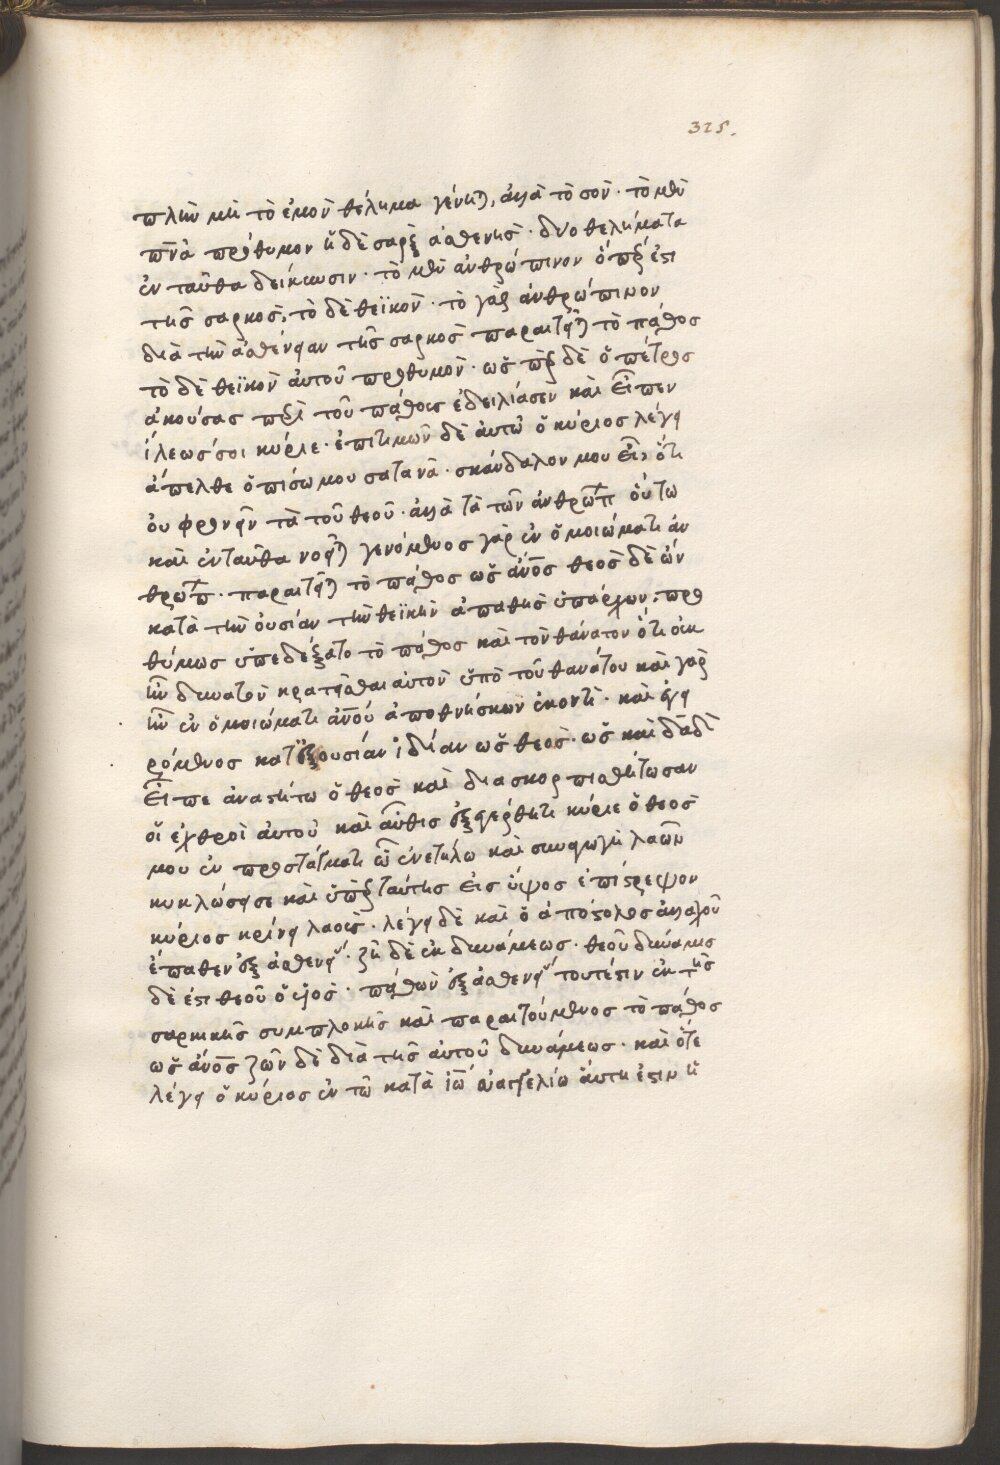 325.
πλὴν μὴ τὸ ἐμὸν θέλημα γένηται, ἀλλὰ τὸ σὸν· τὸ μὲν
πν̅α πρόθυμον ἡ δὲ σαρξ ἀσθενὴς· δύο θελήματα
ἐν ταῦθα δείκνυσιν· τὸ μὲν ἀνθρώπινον ὅπερ ἐστι
τῆς σαρκὸς, τὸ δὲ θεϊκὸν· τὸ γὰρ ἀνθρώπινον
διὰ τὴν ἀσθένειαν τῆς σαρκὸς παραιτεῖται τὸ πάθος
τὸ δὲ θεϊκὸν ἀυτοῦ προθυμὸν· ὥσπερ δὲ ὁ πέτρος
ἀκούσας περὶ τοῦ πάθους ἐδειλίασεν καὶ εἶπεν
ἵλεως σοι κύριε· ἐπιτιμῶν δὲ ἀυτῶ ὁ κύριος λέγει
ἄπελθε ὀπίσω μου σατανᾶ· σκάνδαλον μου εἶ, ὅτι
ὀυ φρονεῖν τὰ τοῦ θεοῦ· ἀλλὰ τὰ τῶν ἀνθρώπ ὅυτω
καὶ ἐνταῦθα νοεῖται γενόμενος γὰρ ἐν ὁμοιώματι ἀν
θρώπ· παραιτεῖται τὸ πάθος ὡς ἄν̅ο̅ς θεὸς δὲ ὢν
κατὰ τὴν ὀυσίαν τὴν θεϊκὴν ἀπαθὴς ὑπάρχων, προ
θύμως ὑπεδέξατο τὸ πάθος καὶ τὸν θάνατον ὅτι ὀυκ
ἦν δυνατὸν κρατεῖσθαι αὐτὸν ὑπὸ τοῦ θανάτου καὶ γὰρ
ἦν ἐν ὁμοιώματι ἀν̅ο̅ύ ἀποθνήσκων ἑκοντὶ· καὶ ἐγει
ρόμενος κατ ἐξουσίαν ἰδίαν ὡς θεὸς· ὡς καὶ δᾱδ̀
εἶπε ἀναστήτω ὁ θεὸς καὶ διασκορπισθήτωσαν
οἱ ἐχθροὶ ἀυτοῦ καὶ αὖθις ἐξεγέρθητι κύριε ὁ θεὸς
μου ἐν προστάγματι ὧ ἐνετείλω καὶ συναγωγὴ λαῶν
κυκλώσει σε καὶ ὑπὲρ ταύτης εἰς ὕψος ἐπίστρεψον
κύριος κρίνει λαοὺς· λέγει δὲ καὶ ὁ ἀπόστολος ἀλλαχοῦ
ἔπαθεν ἐξ ἀσθενεί· ζῆ δὲ ἐκ δυνάμεως· θεοῦ δύναμις
δέ ἐστι θεοῦ ὁ υἱὸς· παθὼν ἐξ ἀσθενεί τουτέστιν ἐκ τῆς
σαρκικῆς συμπλοκῆς καὶ παραιτούμενος τὸ πάθος
ὡς ἄν̅ο̅ς ζῶν δὲ διὰ τῆς ἀυτοῦ δυνάμεως· καὶ ὅτε
λέγει ὁ κύριος ἐν τῶ κατὰ ἰω̅ ἐυαγγελίω ἅυτη ἐστιν ἡ